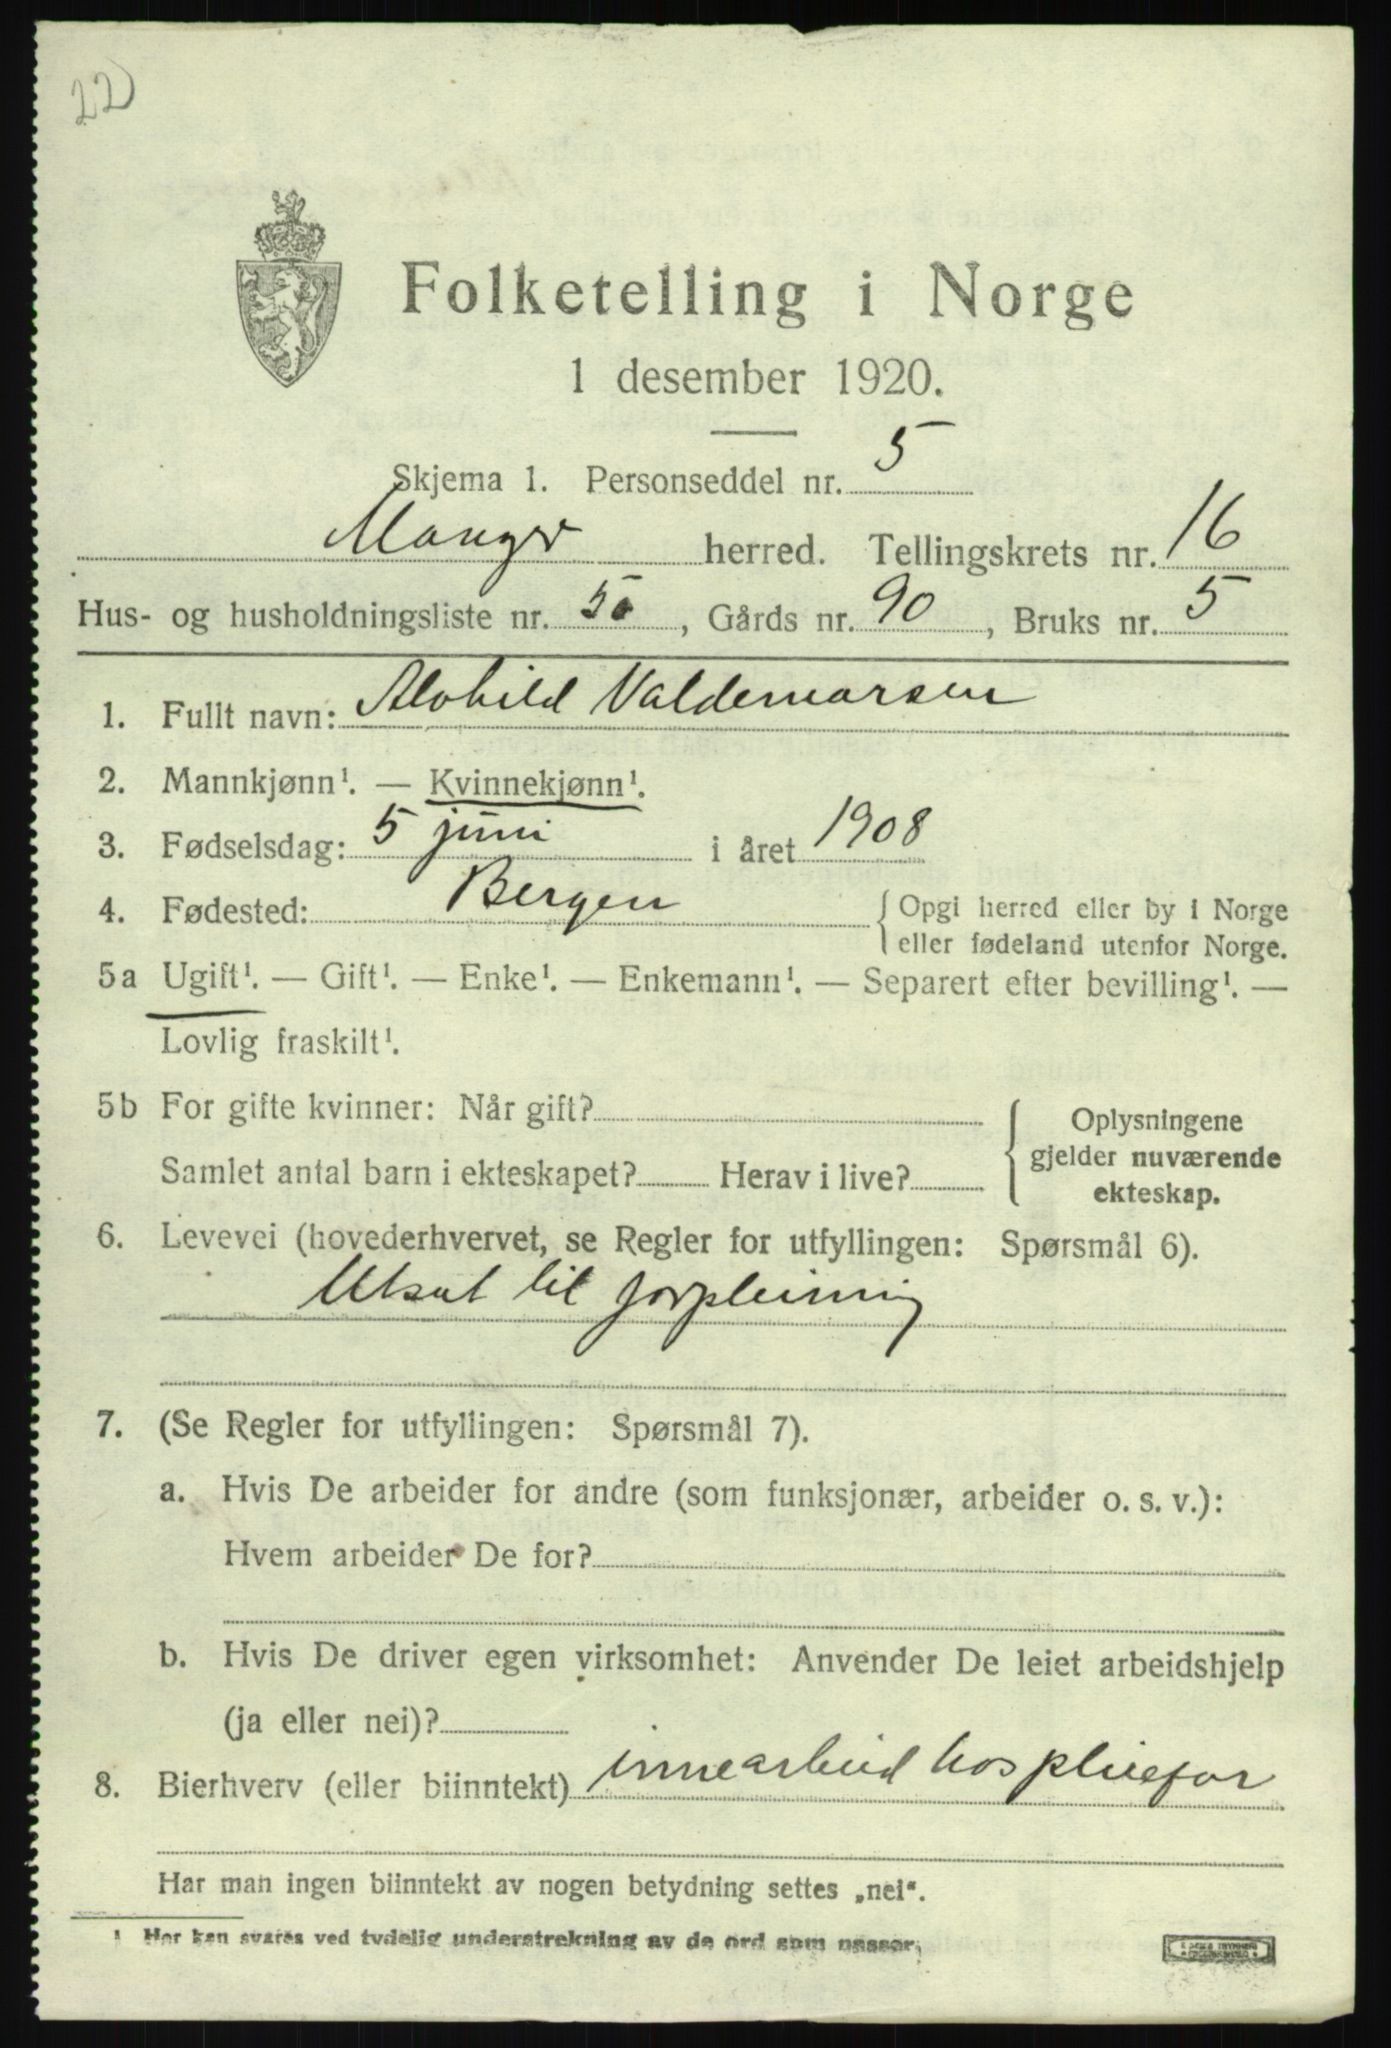 22
Folketelling i Norge
1 desember 1920.
Skjema 1. Personseddel nr. 5
Manger herred. Tellingskrets nr. 16
Hus- og husholdningsliste nr. 50, Gårds nr. 90, Bruks nr. 5
1. Fullt navn: Alvhild Valdemarsen
2. Mannkjønn¹. — Kvinnekjønn¹.
3. Fødselsdag: 5 juni i året 1908
4. Fødested: Bergen { Opgi herred eller by i Norge
eller fødeland utenfor Norge.
5a Ugift¹. — Gift¹. — Enke¹. — Enkemann¹. — Separert efter bevilling¹. —
Lovlig fraskilt¹.
5b For gifte kvinner: Når gift? { Oplysningene
gjelder nuværende
ekteskap.
Samlet antal barn i ekteskapet? Herav i live?
6. Levevei (hovederhvervet, se Regler for utfyllingen: Spørsmål 6).
Utsat til forpleining
7. (Se Regler for utfyllingen: Spørsmål 7).
a. Hvis De arbeider for andre (som funksjonær, arbeider o. s. v.):
Hvem arbeider De for?
b. Hvis De driver egen virksomhet: Anvender De leiet arbeidshjelp
(ja eller nei)?
8. Bierhverv (eller biinntekt) innearbeid hos pliefar
Har man ingen biinntekt av nogen betydning settes „nei“.
¹ Her kan svares ved tydelig understrekning av de ord som passer.